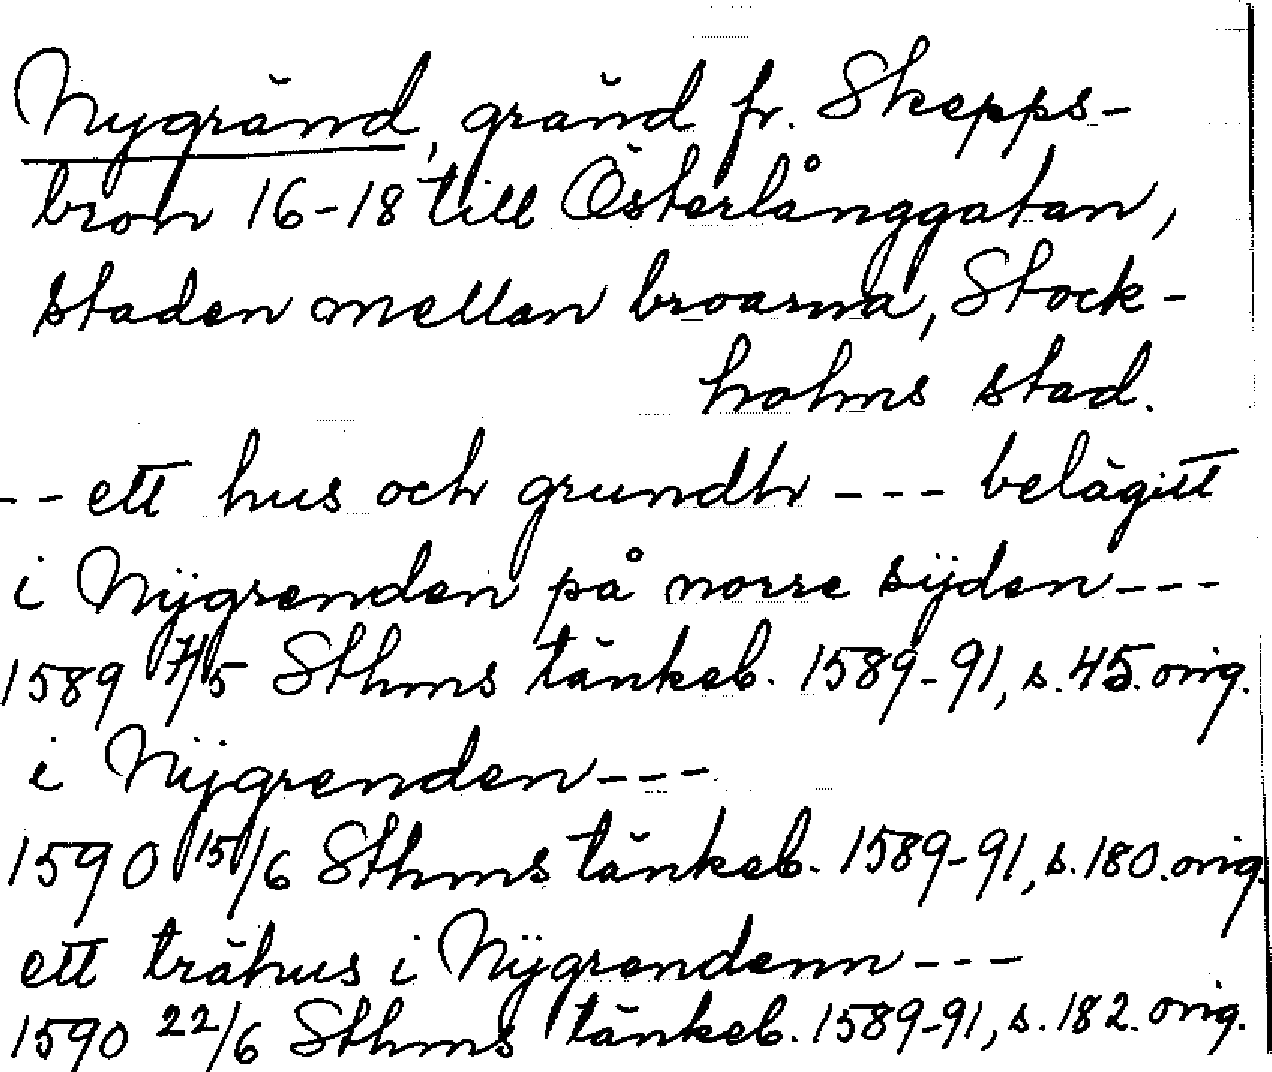 Nygränd, gränd fr. Skepps-
bron 16-18 till Österlånggatan,
staden mellan broarna, Stock-
holms stad.
-- ett hus och grundh --- belägitt
i Nÿgrenden på norre sÿden ---
1589 7/5 Sthms tänkeb. 1589-91, s. 45. orig.
i Nÿgrenden ---
1590 15/6 Sthms tänkeb. 1589-91, s. 180. orig.
ett trähus i Nÿgrendenn ---
1590 22/6 Sthms tänkeb. 1589-91, s. 182. orig.